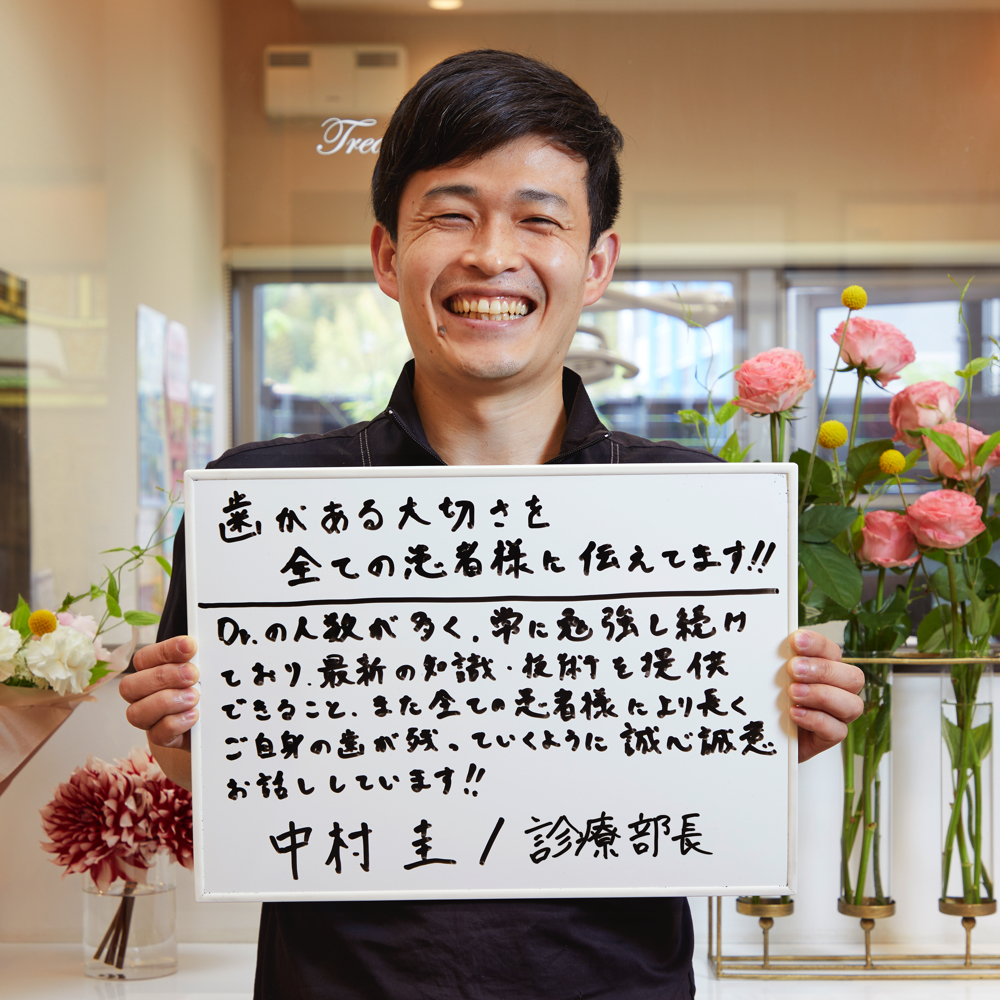 Trea
歯がある大切さを
全ての患者様に伝えてます!!
Dr.の人数が多く、常に勉強し続け
ており、最新の知識・技術を提供
できること、また全ての患者様により長く
ご自身の歯が残っていくように誠心誠意
お話ししています!!
中村 圭/診療部長